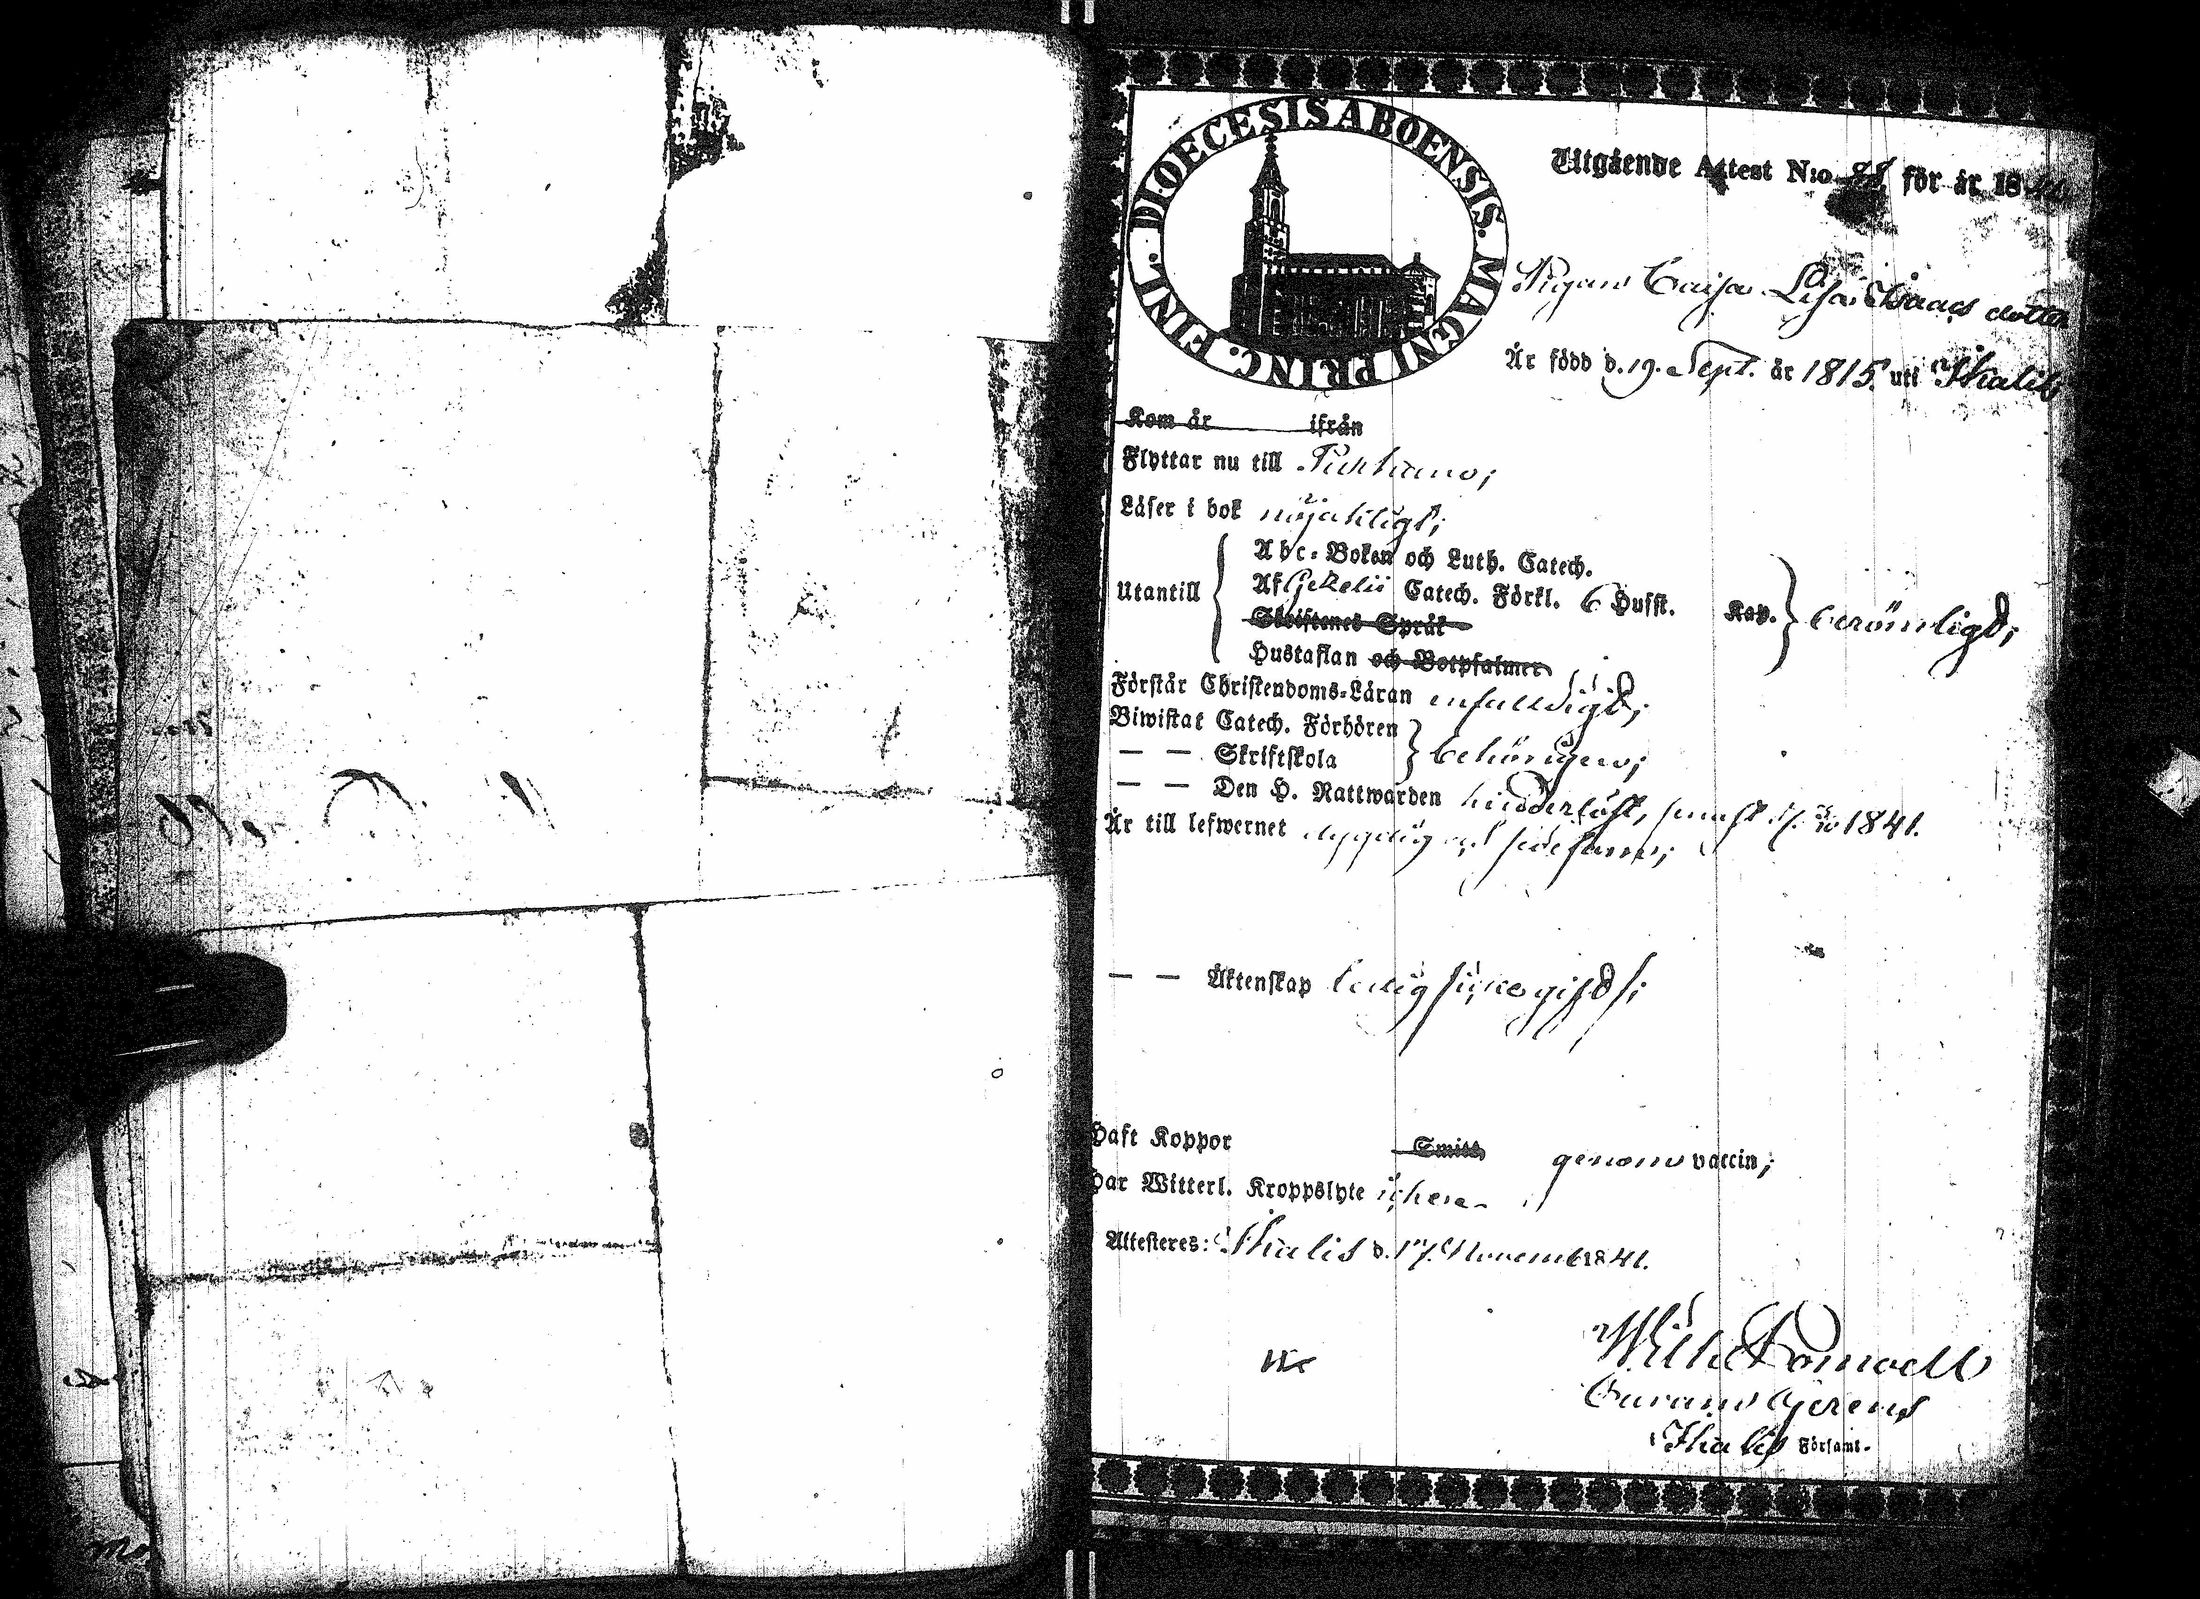 DIOECESIS ABOENSIS. MAGNI PRINC. FINL.
Utgående Attest N:o 88 för år 1841
Pigan Caisa Lisa Isaacs dotter
Är född d. 19. Sept. år 1815. uti Thalis
Kom år ifrån
Flyttar nu till
Läser i bok nöjaktligt;
Utantill
Abc-Boken och Luth. Catech.
Af Gezelii Catech. Förkl. 6 Hufst. Kap. berömligt;
Skriftenes Språk
Hustaflan och Botpsalmer
Förstår Christendoms-Läran enfaldigt;
Biwistat Catech. Förhören
— — Skriftskola behörigen;
— — Den H. Nattwarden 1841.
Är till lefwernet dygdig och sedesam;
— — Äktenskap ledig till giftet;
Haft Koppor Smitt, genom vaccin;
Har Witterl. Kroppslyte icke.
Attesteres: Thalis d. 17. Novemb 1841.
Wilh.
Curam Gerens
Thalis Församl.